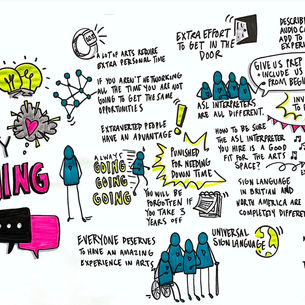 A LOT OF ARTS REQUIRE
EXTRA PERSONAL TIME
IF YOU AREN'T NETWORKING
ALL THE TIME YOU ARE NOT
GOING TO GET THE SAME
OPPORTUNITIES
EXTRAVERTED PEOPLE
HAVE AN ADVANTAGE
ALWAYS
GOING
GOING
GOING
PUNISHED
FOR NEEDING
DOWN TIME
YOU WILL BE
FORGOTTEN IF
YOU TAKE 3
YEARS OFF
EVERYONE DESERVES
TO HAVE AN AMAZING
EXPERIENCE IN ARTS
EXTRA EFFORT
TO GET IN THE
DOOR
DESCRIB
AUDIO C
ADD TO
EXPERI
GIVE US PREP
INCLUDE US
FROM BEGIN
ASL INTERPRETERS
ARE ALL DIFFERENT.
HOW TO BE SURE
THE ASL INTERPRETER
YOU HIRE IS A GOOD
FIT FOR THE ARTS
SPACE?
SIGN LANGUAGE
IN BRITIAN AND
NORTH AMERICA ARE
COMPLETELY DIFFERE
UNIVERSAL
SIGN LANGUAGE
Y
ING